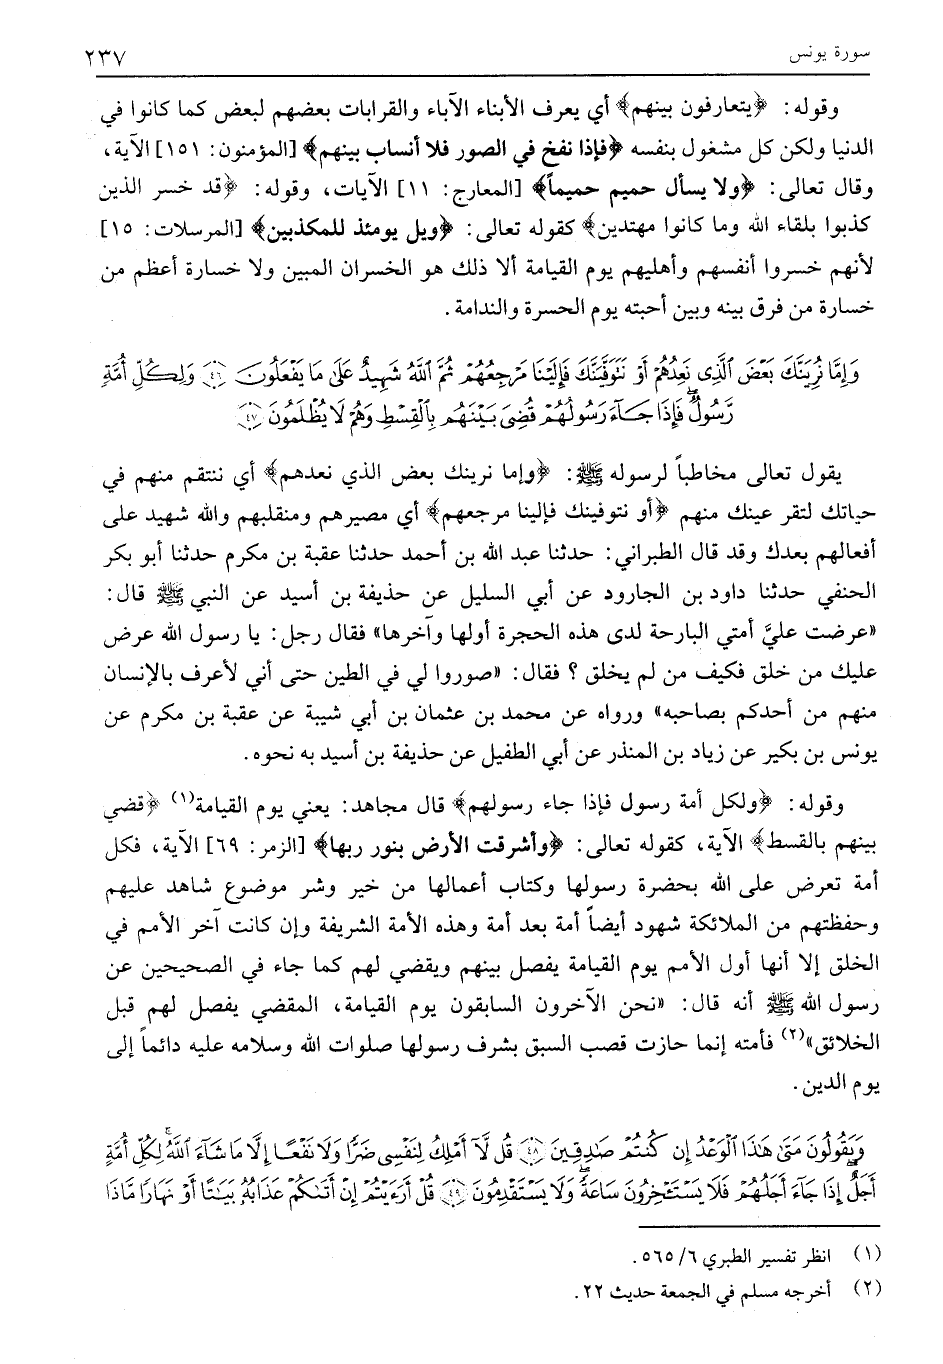 سورة يونس ٢٣٧
وقوله: ﴿يتعارفون بينهم﴾ أي يعرف الأبناء الآباء والقرابات بعضهم لبعض كما كانوا في
الدنيا ولكن كل مشغول بنفسه ﴿فإذا نفخ في الصور فلا أنساب بينهم﴾ [المؤمنون: ١٥١] الآية،
وقال تعالى: ﴿ولا يسأل حميم حميماً﴾ [المعارج: ١١] الآيات، وقوله: ﴿قد خسر الذين
كذبوا بلقاء الله وما كانوا مهتدين﴾ كقوله تعالى: ﴿ويل يومئذ للمكذبين﴾ [المرسلات: ١٥]
لأنهم خسروا أنفسهم وأهليهم يوم القيامة ألا ذلك هو الخسران المبين ولا خسارة أعظم من
خسارة من فرق بينه وبين أحبته يوم الحسرة والندامة.
وَإِمَّا نُرِيَنَّكَ بَعْضَ ٱلَّذِى نَعِدُهُمْ أَوْ نَتَوَفَّيَنَّكَ فَإِلَيْنَا مَرْجِعُهُمْ ثُمَّ ٱللَّهُ شَهِيدٌ عَلَىٰ مَا يَفْعَلُونَ ﴿٤٦﴾ وَلِكُلِّ أُمَّةٍ
رَّسُولٌ ۖ فَإِذَا جَآءَ رَسُولُهُمْ قُضِىَ بَيْنَهُم بِٱلْقِسْطِ وَهُمْ لَا يُظْلَمُونَ ﴿٤٧﴾
يقول تعالى مخاطباً لرسوله ﷺ: ﴿وإما نرينك بعض الذي نعدهم﴾ أي ننتقم منهم في
حياتك لتقر عينك منهم ﴿أو نتوفينك فإلينا مرجعهم﴾ أي مصيرهم ومنقلبهم والله شهيد على
أفعالهم بعدك وقد قال الطبراني: حدثنا عبد الله بن أحمد حدثنا عقبة بن مكرم حدثنا أبو بكر
الحنفي حدثنا داود بن الجارود عن أبي السليل عن حذيفة بن أسيد عن النبي ﷺ قال:
«عرضت عليَّ أمتي البارحة لدى هذه الحجرة أولها وآخرها» فقال رجل: يا رسول الله عرض
عليك من خلق فكيف من لم يخلق؟ فقال: «صوروا لي في الطين حتى أني لأعرف بالإنسان
منهم من أحدكم بصاحبه» ورواه عن محمد بن عثمان بن أبي شيبة عن عقبة بن مكرم عن
يونس بن بكير عن زياد بن المنذر عن أبي الطفيل عن حذيفة بن أسيد به نحوه.
وقوله: ﴿ولكل أمة رسول فإذا جاء رسولهم﴾ قال مجاهد: يعني يوم القيامة(١) ﴿قضي
بينهم بالقسط﴾ الآية، كقوله تعالى: ﴿وأشرقت الأرض بنور ربها﴾ [الزمر: ٦٩] الآية، فكل
أمة تعرض على الله بحضرة رسولها وكتاب أعمالها من خير وشر موضوع شاهد عليهم
وحفظتهم من الملائكة شهود أيضاً أمة بعد أمة وهذه الأمة الشريفة وإن كانت آخر الأمم في
الخلق إلا أنها أول الأمم يوم القيامة يفصل بينهم ويقضي لهم كما جاء في الصحيحين عن
رسول الله ﷺ أنه قال: «نحن الآخرون السابقون يوم القيامة، المقضي يفصل لهم قبل
الخلائق»(٢) فأمته إنما حازت قصب السبق بشرف رسولها صلوات الله وسلامه عليه دائماً إلى
يوم الدين.
وَيَقُولُونَ مَتَىٰ هَٰذَا ٱلْوَعْدُ إِن كُنتُمْ صَٰدِقِينَ ﴿٤٨﴾ قُل لَّآ أَمْلِكُ لِنَفْسِى ضَرًّا وَلَا نَفْعًا إِلَّا مَا شَآءَ ٱللَّهُ ۗ لِكُلِّ أُمَّةٍ
أَجَلٌ ۚ إِذَا جَآءَ أَجَلُهُمْ فَلَا يَسْتَـْٔخِرُونَ سَاعَةً ۖ وَلَا يَسْتَقْدِمُونَ ﴿٤٩﴾ قُلْ أَرَءَيْتُمْ إِنْ أَتَىٰكُمْ عَذَابُهُۥ بَيَٰتًا أَوْ نَهَارًا مَّاذَا
(١) انظر تفسير الطبري ٦/ ٥٦٥.
(٢) أخرجه مسلم في الجمعة حديث ٢٢.